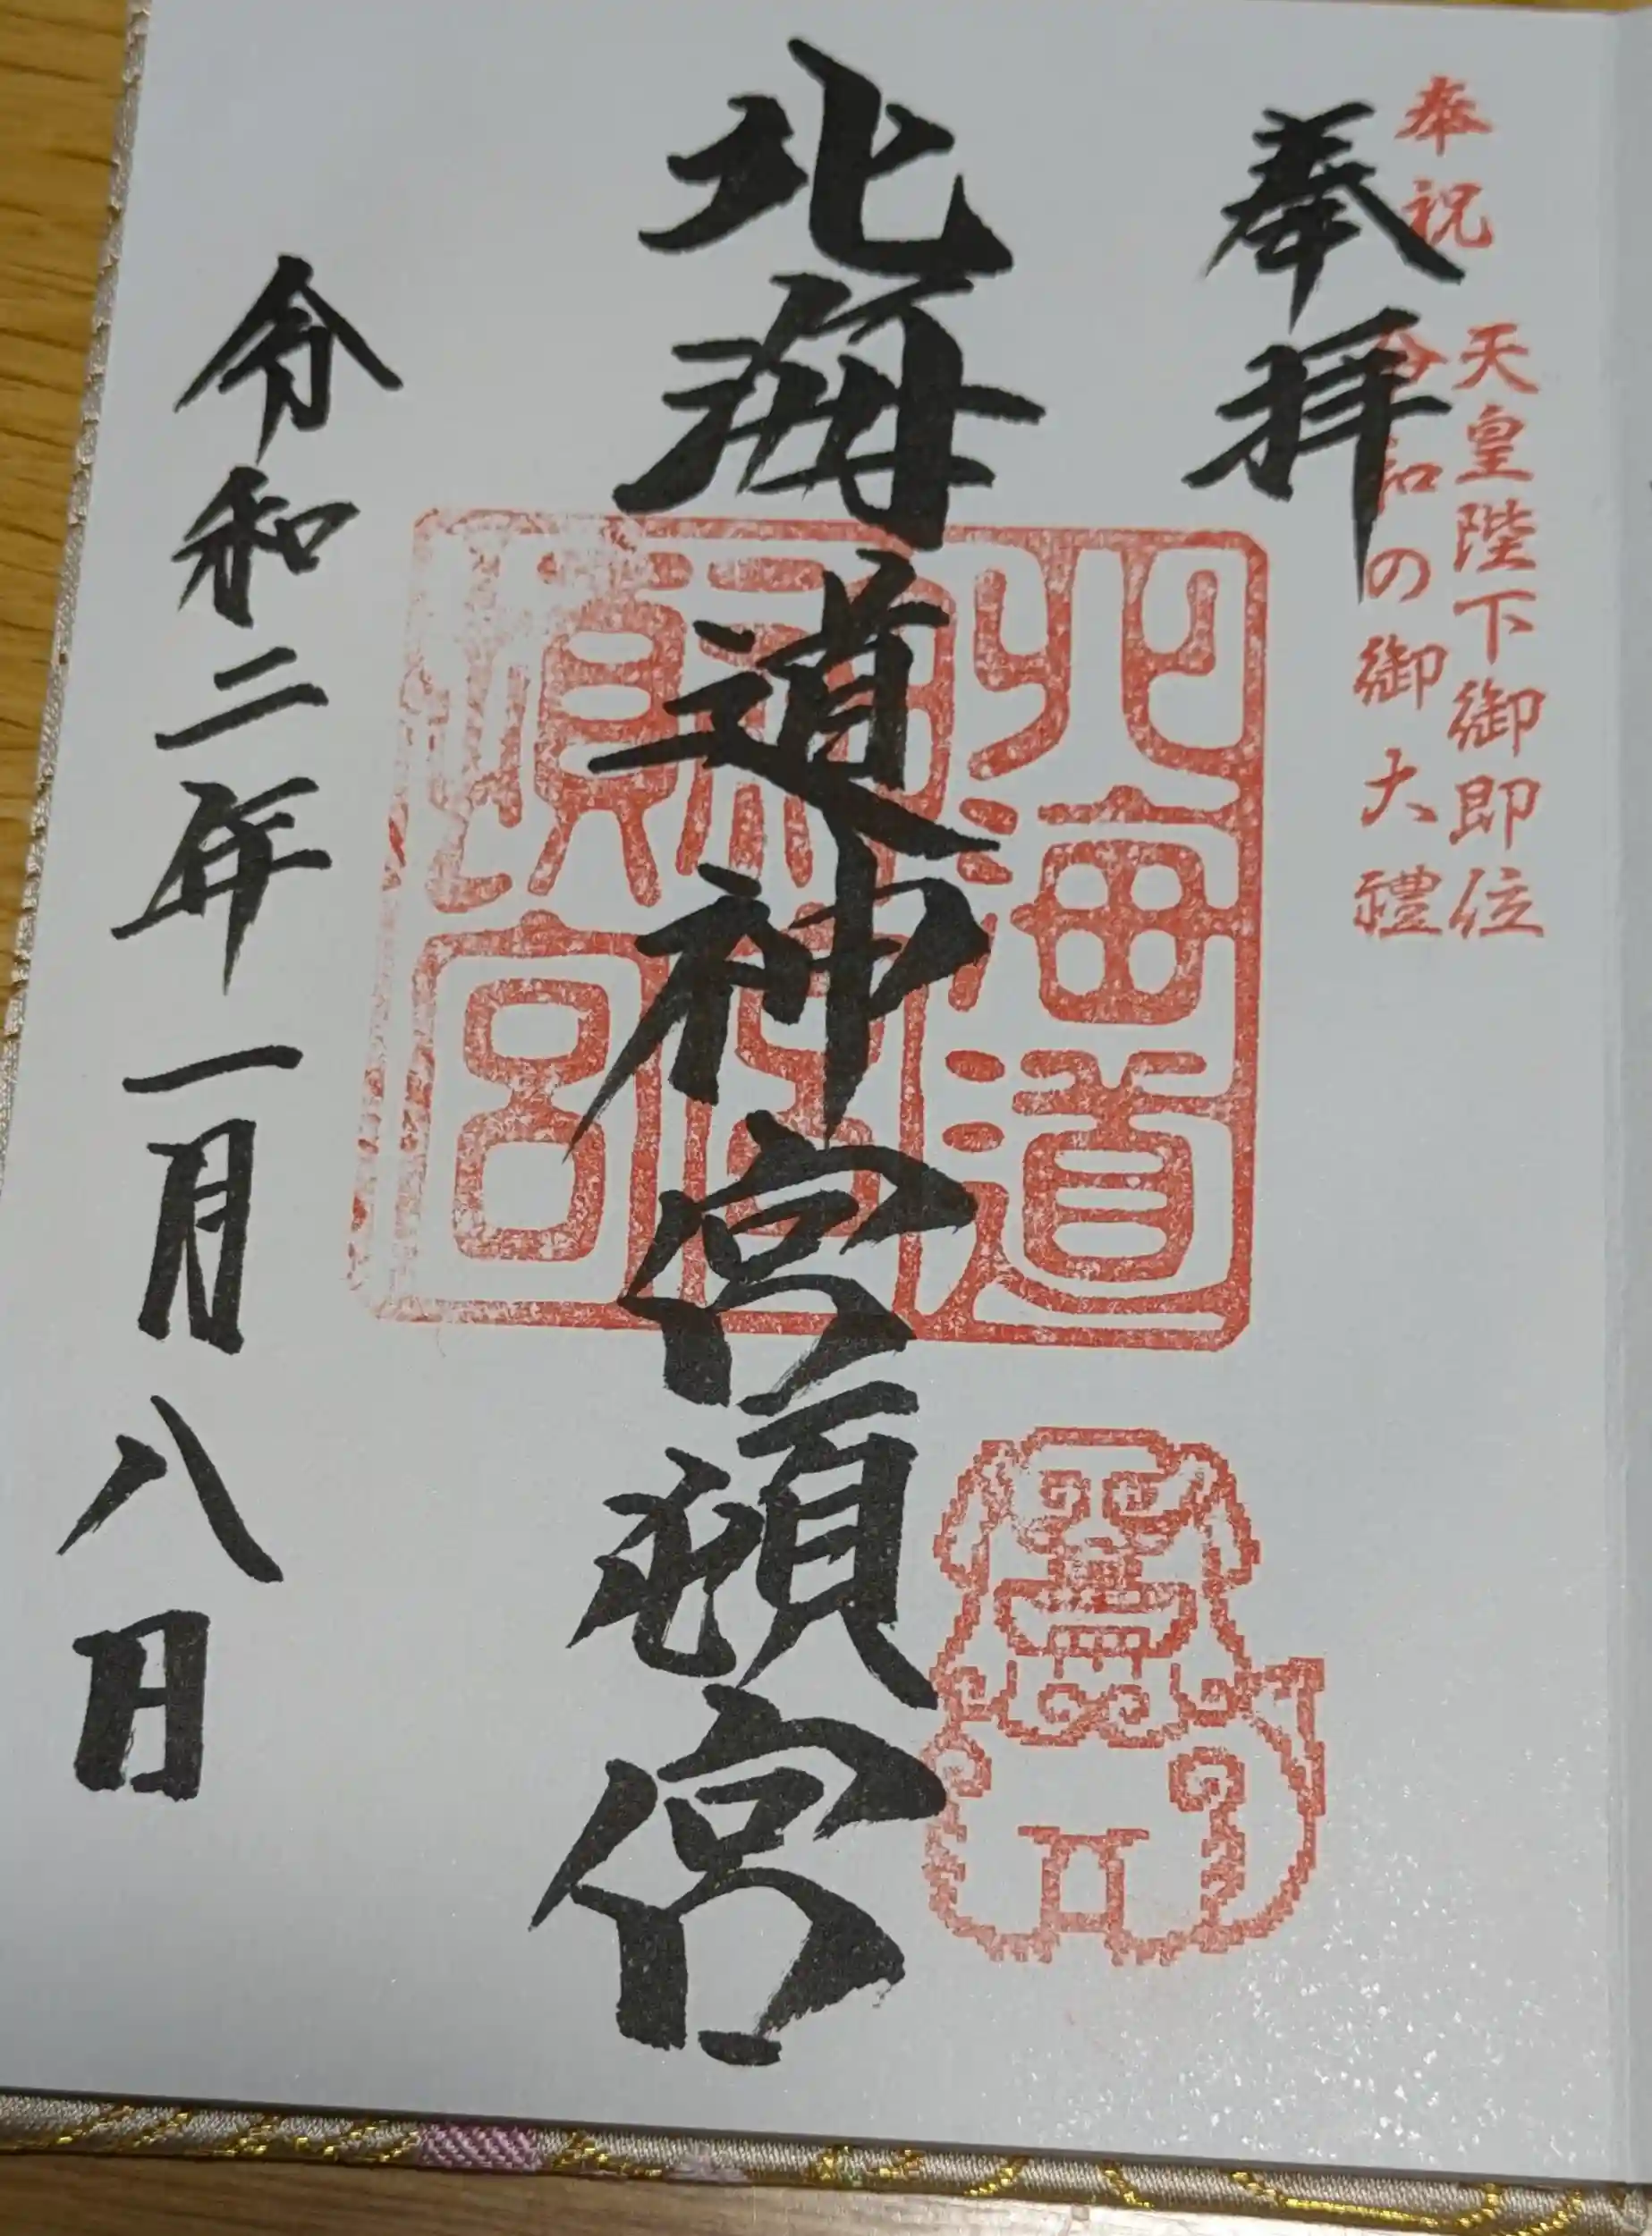 奉祝
天皇陛下御即位
令和の御大禮
奉拝
北海道神宮頓宮
北海道
神宮
頓宮
令和二年一月八日